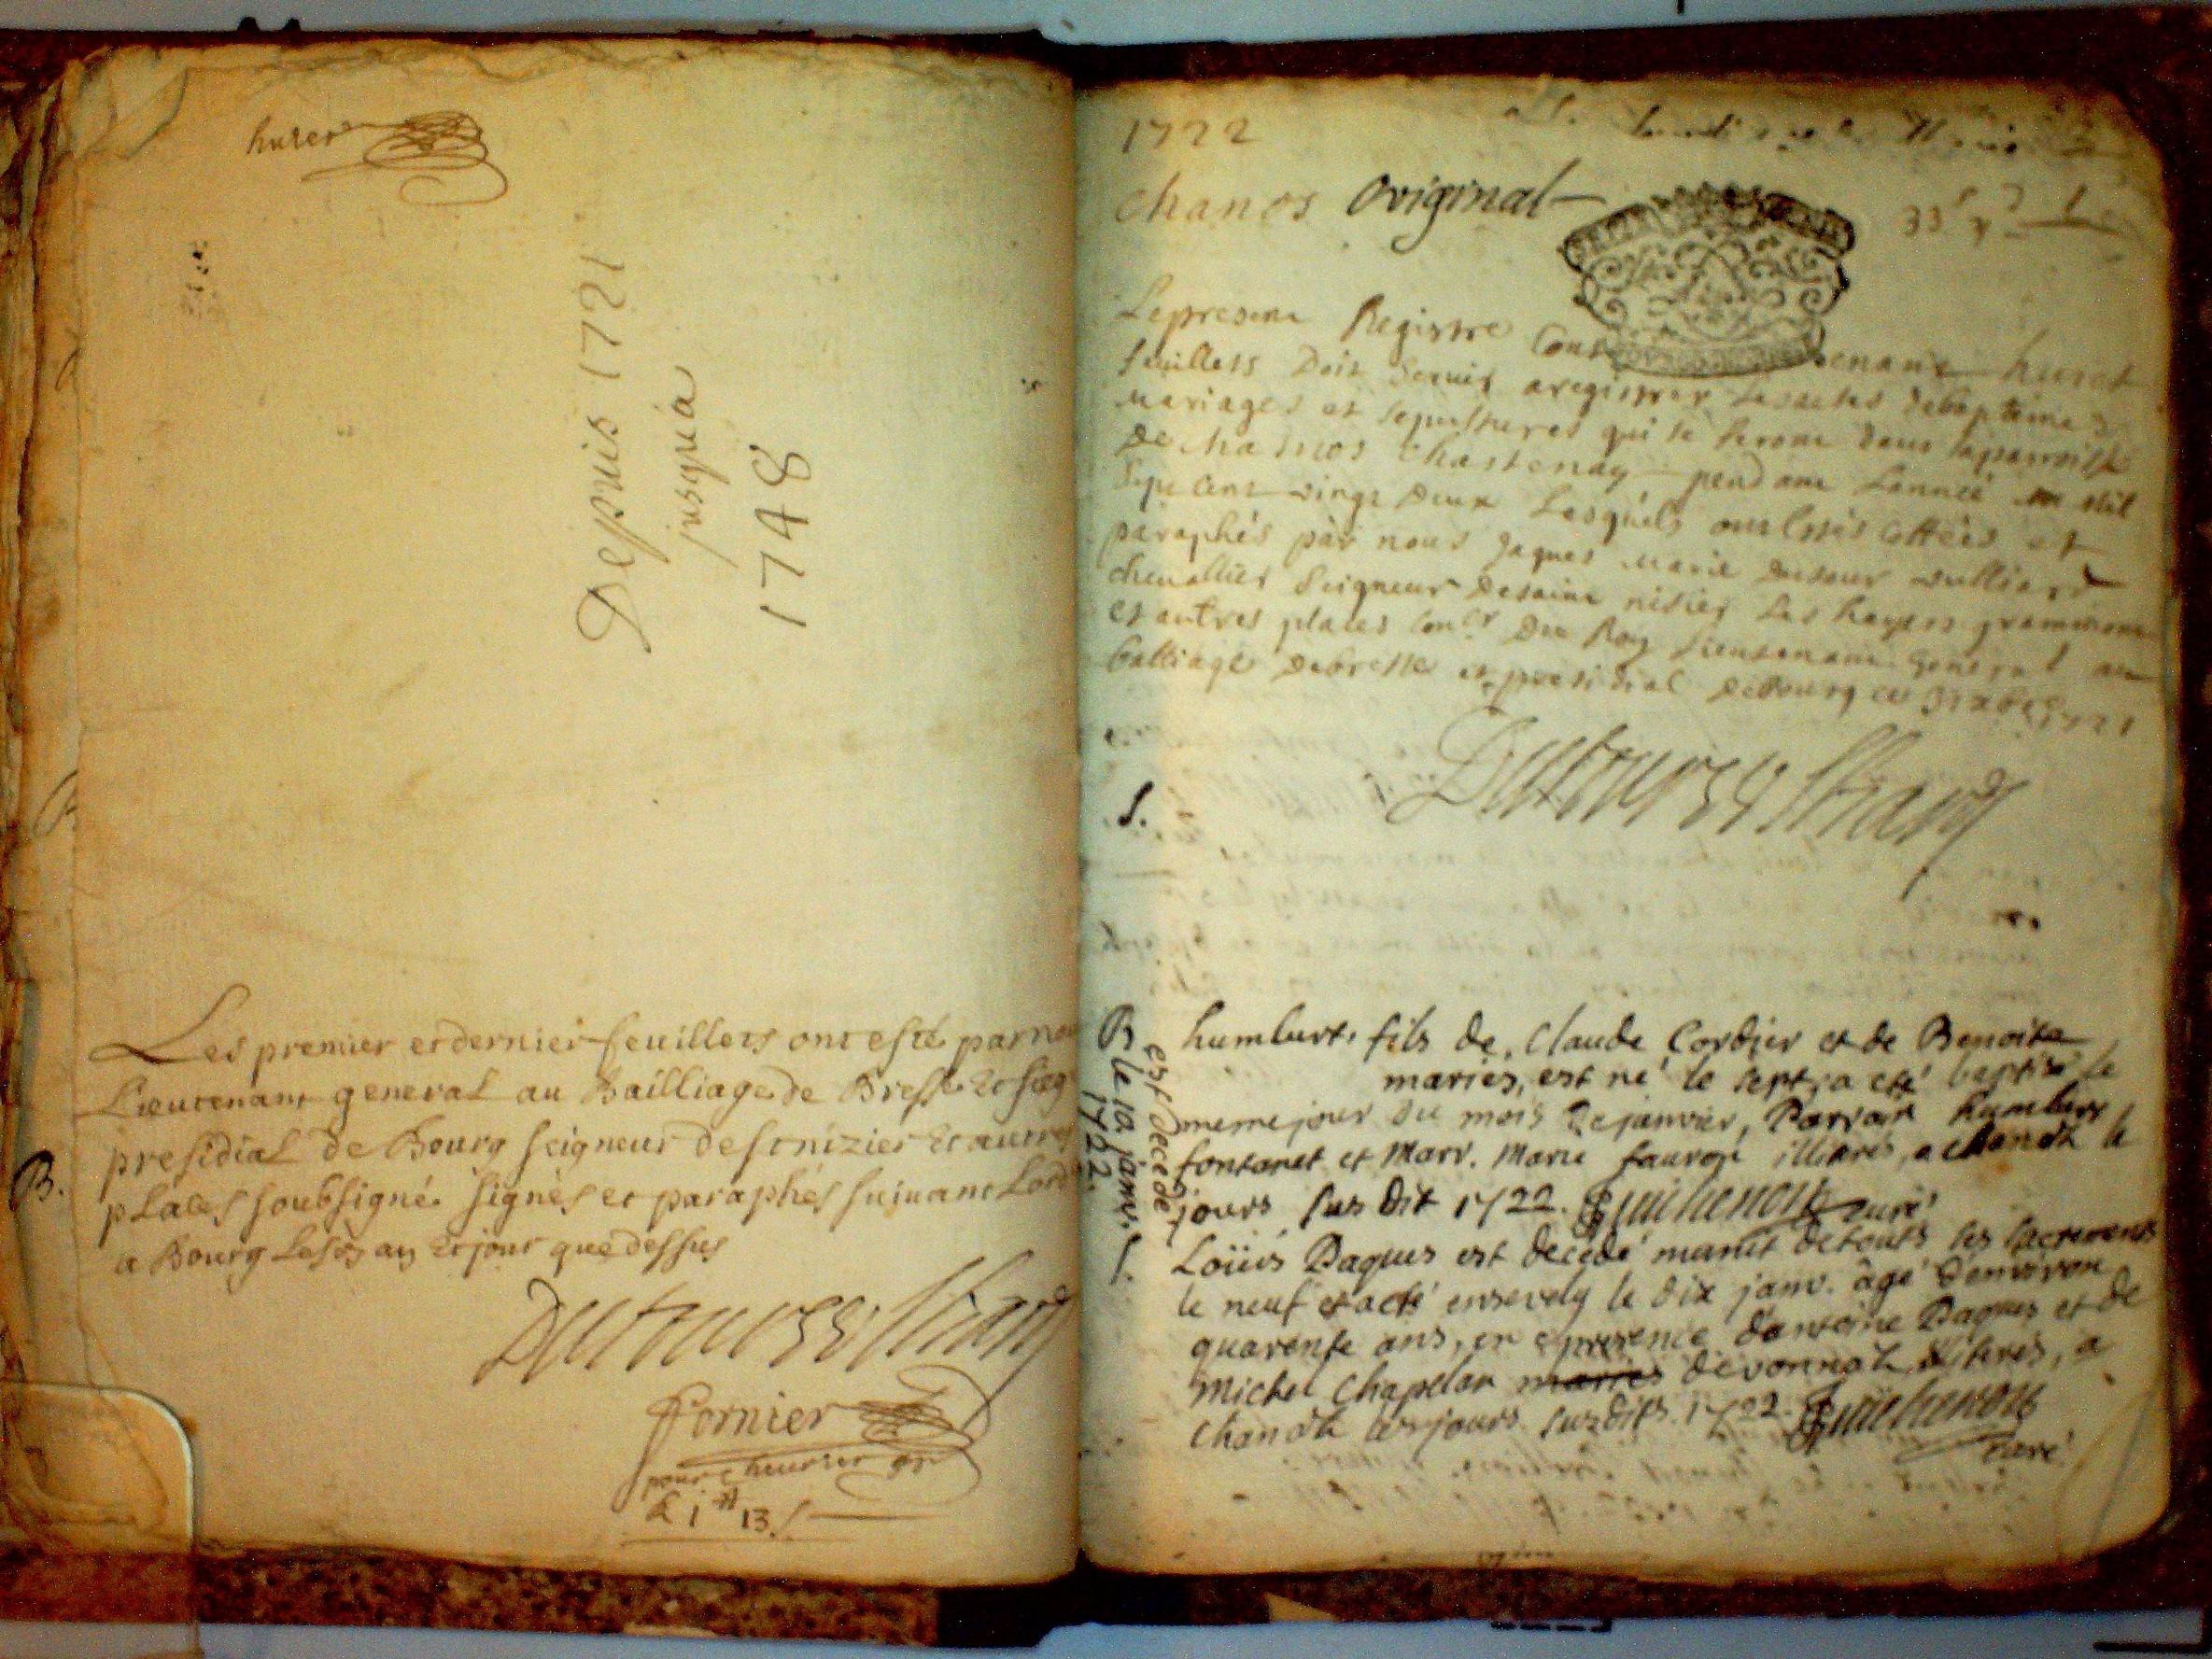 huict
Depuis 1721
jusqu'a
1748
Les premier et dernier feuillets ont esté par no
Lieutenant general au Bailliage de Bresse et sieg
presidial de Bourg seigneur de st nizier et autres
places soubsigné signés et paraphés suivant Lord
a Bourg Les an et jour que dessus
Dutour Vulliard
Fornier
pour
R i # 13 s
1722
chanos Original
Le present Registre Cont tenant huict
feuillets Doit servir a registrer les actes de baptemes
mariages et sepultures qui se feront dans la parroisse
De Chanos Chastenay pendant Lanneé mil
Sept cent vingt Deux Lesquels ont estés cottées et
paraphés par nous Jaques Marie Dutour Vulliard
chevallier Seigneur de saint nisier
et autres places Conser Du Roy Lieutenant General au
balliage de bresse et presidial de Bourg ce 1721
Dutour Vulliard
S.
B
est décédé
le 19 janv.
1722.
humbert fils de Claude Cordier et de Benoite
mariés, est né le sept, a eté baptisé le
meme jour du mois de janvier, Parrain humbert
fontanet et Marr. Marie illiterés, a chanoz le
jours sus dit 1722. Guichenon curé
S.
Loüis Paques est decedé munit de touts ses sacrements
le neuf et a eté ensevely le dix janv. âgé d'environ
quarente ans, en presence d'antoine Paques et de
Michel Chapelan maries de vonnaz illiterés, a
Chanoz les jours susdits. 1722. Guichenon
curé
B.